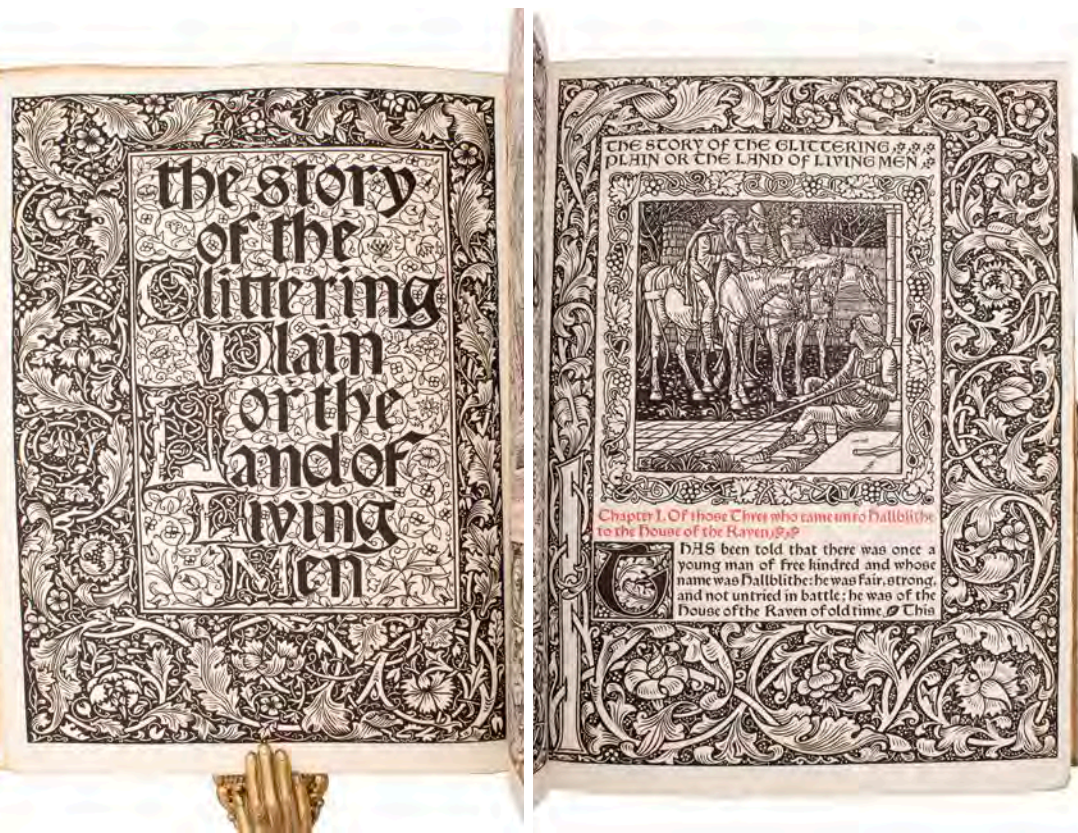 the story
of the
Glittering
Plain
or the
Land of
Living
Men
THE STORY OF THE GLITTERING
PLAIN OR THE LAND OF LIVING MEN
Chapter I. Of those Three who came unto Hallblithe
to the House of the Raven
THAS been told that there was once a
young man of free kindred and whose
name was Hallblithe: he was fair, strong,
and not untried in battle; he was of the
House of the Raven of old time. This